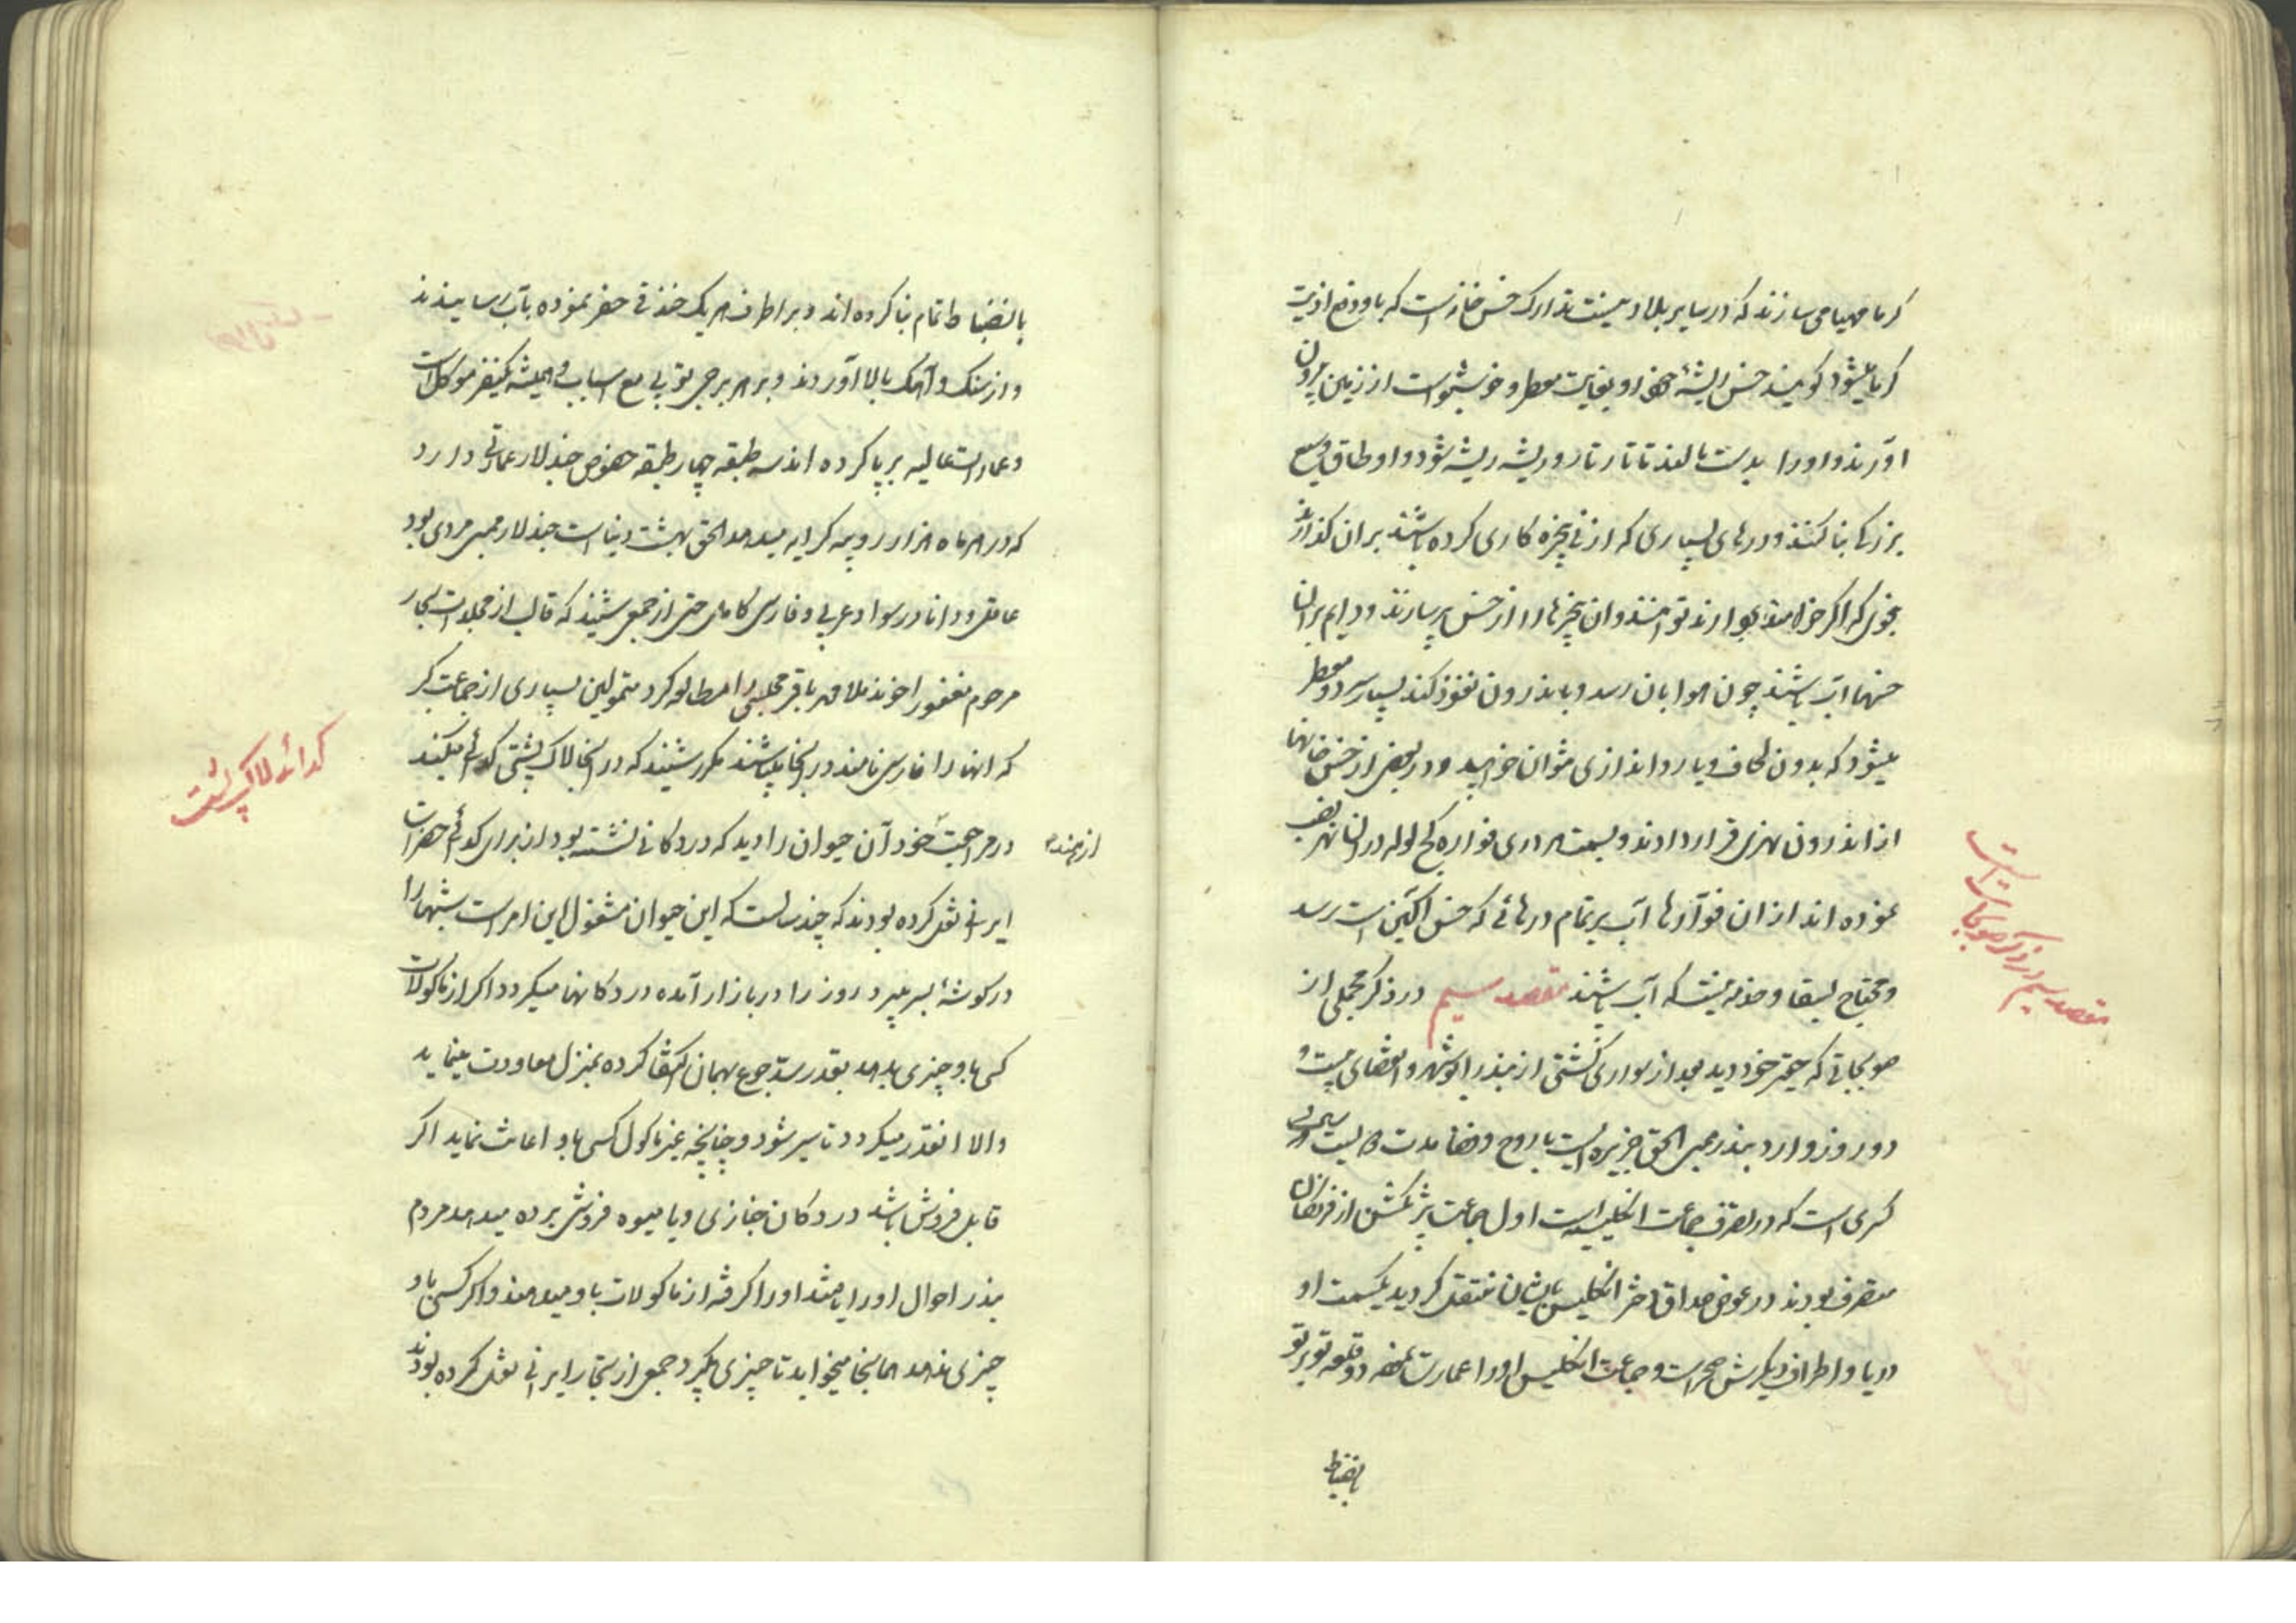 گرما مهیا می سازند که در سایر بلاد نیست تدارک خس خانه است که با وجود آن اذیت
گرما نمیشود گویند خس ریشۀ او بغایت معطر و خوشبو است از زمین بیرون
آورند و او را بدست مالند تا تار تار و ریشه ریشه شود و اوطاق وسیع
بزرگی بنا کنند و درهای بسیاری که از نی پنجره کاری کرده باشند بران گذارند
بنحوی که اگر خواهند بردارند توانند و ان پنجرها را از خس پر سازند و دایم بران
خسها آب پاشند چون هوا بان رسد و باندرون نفوذ کند بسیار سرد و معطر
میشود که بدون لحاف و یا رواندازی نتوان خوابید و در بعضی از خس خانها
از اندرون نهری قرار دادند و بسمت هر دری فواره کج لوله در ان نهر نصب
نموده اند از ان فوآرها آب بر تمام درهائی که خس آگین است رسد
و محتاج بسقا و خدمه نیست که آب پاشند مقصد سیم در ذکر مجملی از
صوبجاتی که حقیر خود دید بعد از سواری کشتی از بندر ابوشهر و انقضای بیست و
دو روز وارد بندر ممبی الحق جزیره ایست با روح و صفا
است که در تصرف جماعت انگلیسیه است اول جماعت پرتکش از فرنگان
متصرف بودند در عوض صداق دختر انگلیس بایشان منتقل گردید یکسمت او
دریا و اطراف دیگرش صحراست و جماعت انگلیس او را عمارت نموده دو قلعه تو بر تو
بانضباط
مقصد سیم در ذکر صوبجات است
بانضباط تمام بنا کرده اند و بر اطراف هر یک خندقی حفر نموده بآب رسانیدند
و از سنگ و آهک بالا آوردند و بر هر برجی توپی مع اسباب و همیشه یکنفر موکل است
و عمارات عالیه بر پا کرده اند سه طبقه چهار طبقه خصوص جندلار عماراتی دارد
که در هر ماه هزار روپیه کرایه میدهد الحق بهشت دنیا است جندلار ممبی مردی بود
عاقل و دانا در سواد عربی و فارسی کامل حتی از جمعی شنید که قالب از مجلدات بحار
مرحوم مغفور اخوند ملا محمد باقر مجلسی را مطالعه کرد متمولین بسیاری از جماعت گبر
که انها را فارسی نامند در انجا میباشند مکرر شنید که در انجا لاک پشتی گدائی میکند
در مراجعت خود آن حیوان را دید که در دکانی نشسته بود از برای گدائی حضرات
از هند
ایرانی نقل کرده بودند که چند سالست که این حیوان مشغول این امر است شبها را
در گوشۀ بسر میبرد و روز را در بازار آمده در دکانها میگردد اگر از ماکولات
کسی باو چیزی بدهد بقدر سد جوع بهمان اکتفا کرده بمنزل معاودت مینماید
والا انقدر میگردد تا سیر شود و چنانچه غیر ماکول کسی باو اعانت نماید اگر
قابل فروش باشد در دکان خبازی و یا میوه فروشی برده میدهد مردم
بندر احوال او را یافتند او را گرفته از ماکولات باو میدهند و اگر کسی باو
چیزی ندهد همانجا میخوابد تا چیزی بگیرد جمعی از تجار ایرانی نقل کرده بودند
گدائی لاک پشت